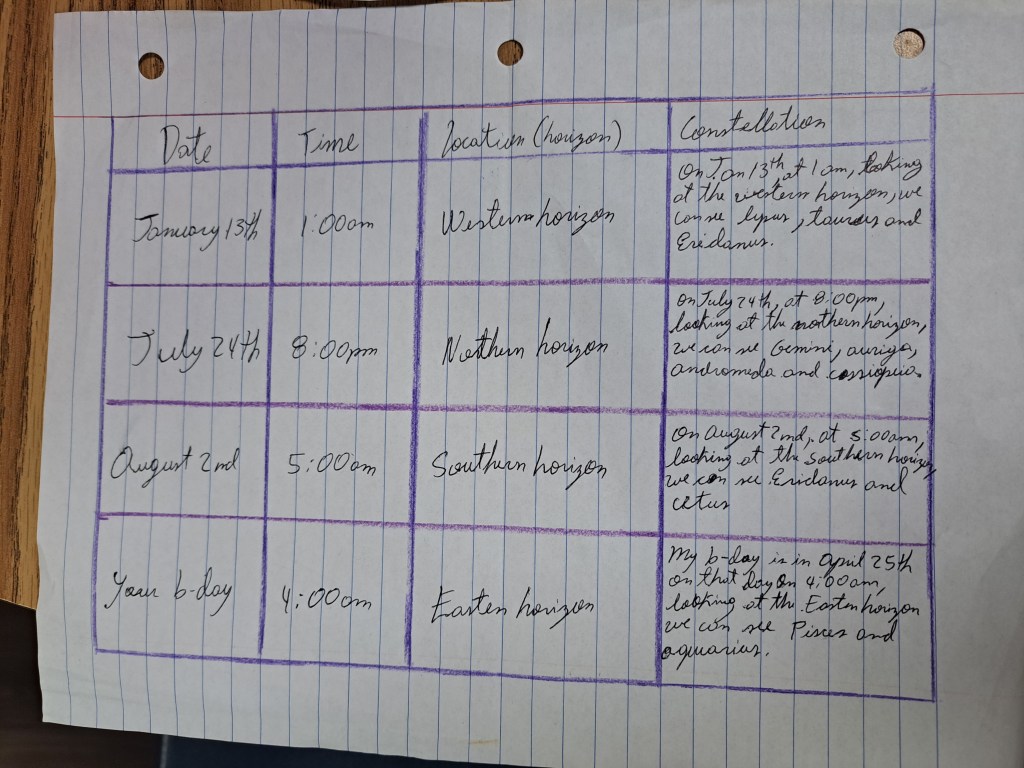 Date
Time
Location (horizon)
Constellation
January 13th
1:00am
Western horizon
On Jan 13th at 1am, looking
at the western horizon, we
can see lypus, taurus and
Eridanus.
July 24th
8:00pm
Nothern horizon
on July 24th, at 8:00pm,
looking at the northern horizon,
we can see Gemini, auriga,
andromeda and cassiopeia.
August 2nd
5:00am
Southern horizon
On august 2nd, at 5:00am,
looking at the southern horizon,
we can see Eridanus and
cetus
Your b-day
4:00am
Easten horizon
My b-day is in april 25th
on that day on 4:00am,
looking at the Easten horizon
we can see Pisces and
aquarius.